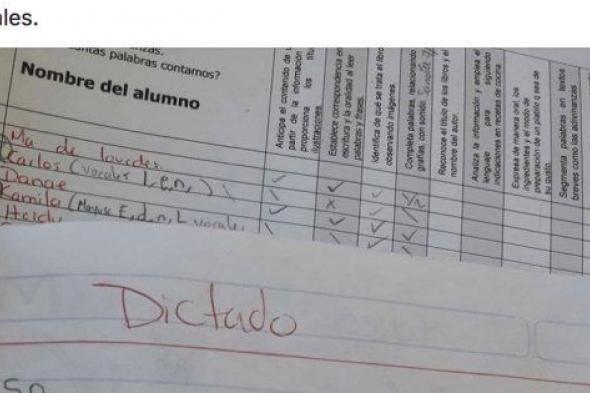 les.
palabras contamos?
Nombre del alumno
Anticipa el contenido de
partir de la información
proporciona los
ilustraciones.
Establece correspondencia
escritura y la oralidad al leer
palabras y frases.
Identifica de qué se trata el libro
observando imágenes.
Completa palabras, relacionando
grafías, con sonido.
Reconoce el título de los libros y el
nombre del autor.
Analiza la información y emplea el
lenguaje para seguir
indicaciones en recetas de cocina
Expresa de manera oral, los
ingredientes y el modo de
preparación de un platillo o sea de
su gusto.
Segmenta palabras en textos
breves como las adivinanzas
Ma de lourdes
Karlos (vocales L, e, n, )
Danae
Kamila (E, d, n, L vocales
Heidi
Dictado
so